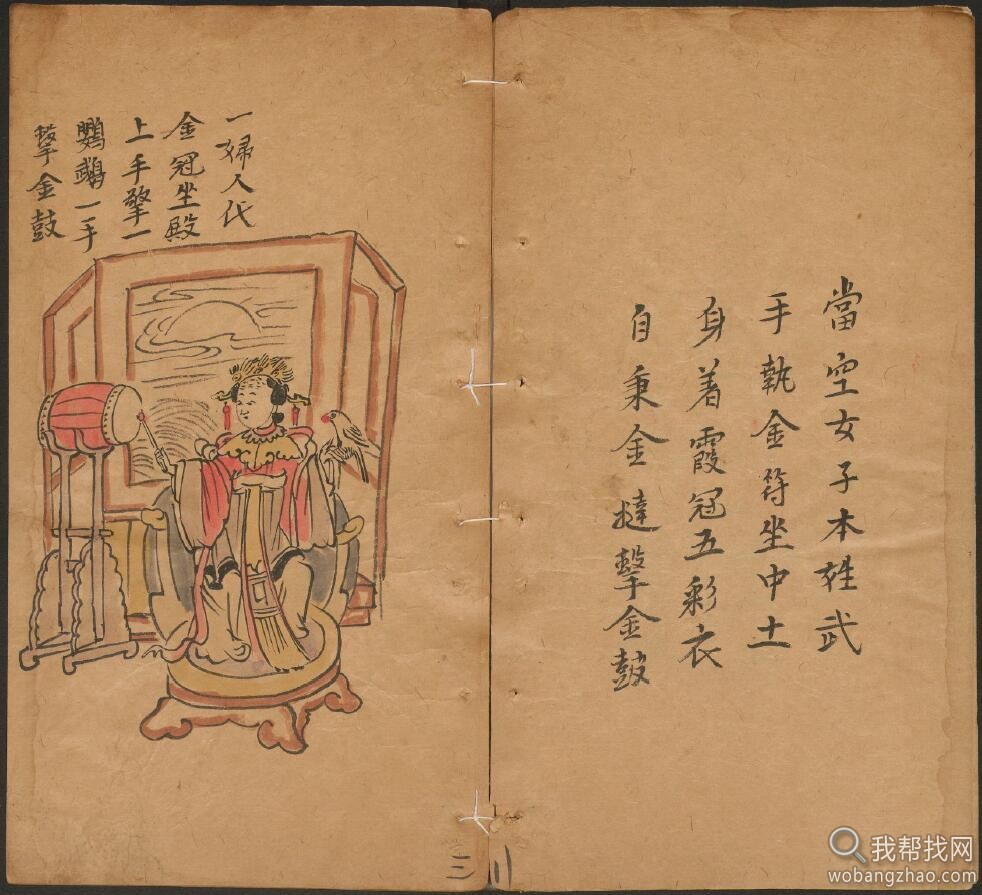 當空女子本姓武
手執金符坐中土
身着霞冠五彩衣
自秉金撻擊金鼓
一婦人代
金冠坐殿
上手擎一
鸚鵡一手
擊金鼓
三
川
我帮找网
wobangzhao.com